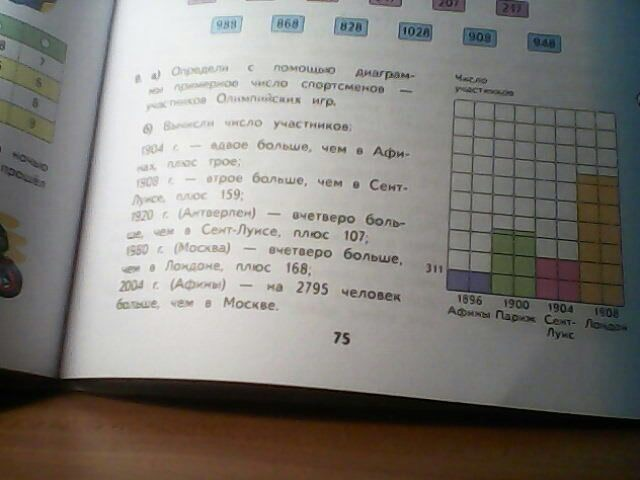 207
247
988 868 828 1028 908 948
7
8
6
8
9
ночью
прошёл
8. а) Определи с помощью диаграм-
мы примерное число спортсменов —
участников Олимпийских игр.
б) Вычисли число участников:
1904 г. — вдвое больше, чем в Афи-
нах, плюс трое;
1908 г. — втрое больше, чем в Сент-
Луисе, плюс 159;
1920 г. (Антверпен) — вчетверо боль-
ше, чем в Сент-Луисе, плюс 107;
1980 г. (Москва) — вчетверо больше,
чем в Лондоне, плюс 168;
2004 г. (Афины) — на 2795 человек
больше, чем в Москве.
Число
участников
311
1896 1900 1904 1908
Афины Париж Сент-Луис Лондон
75